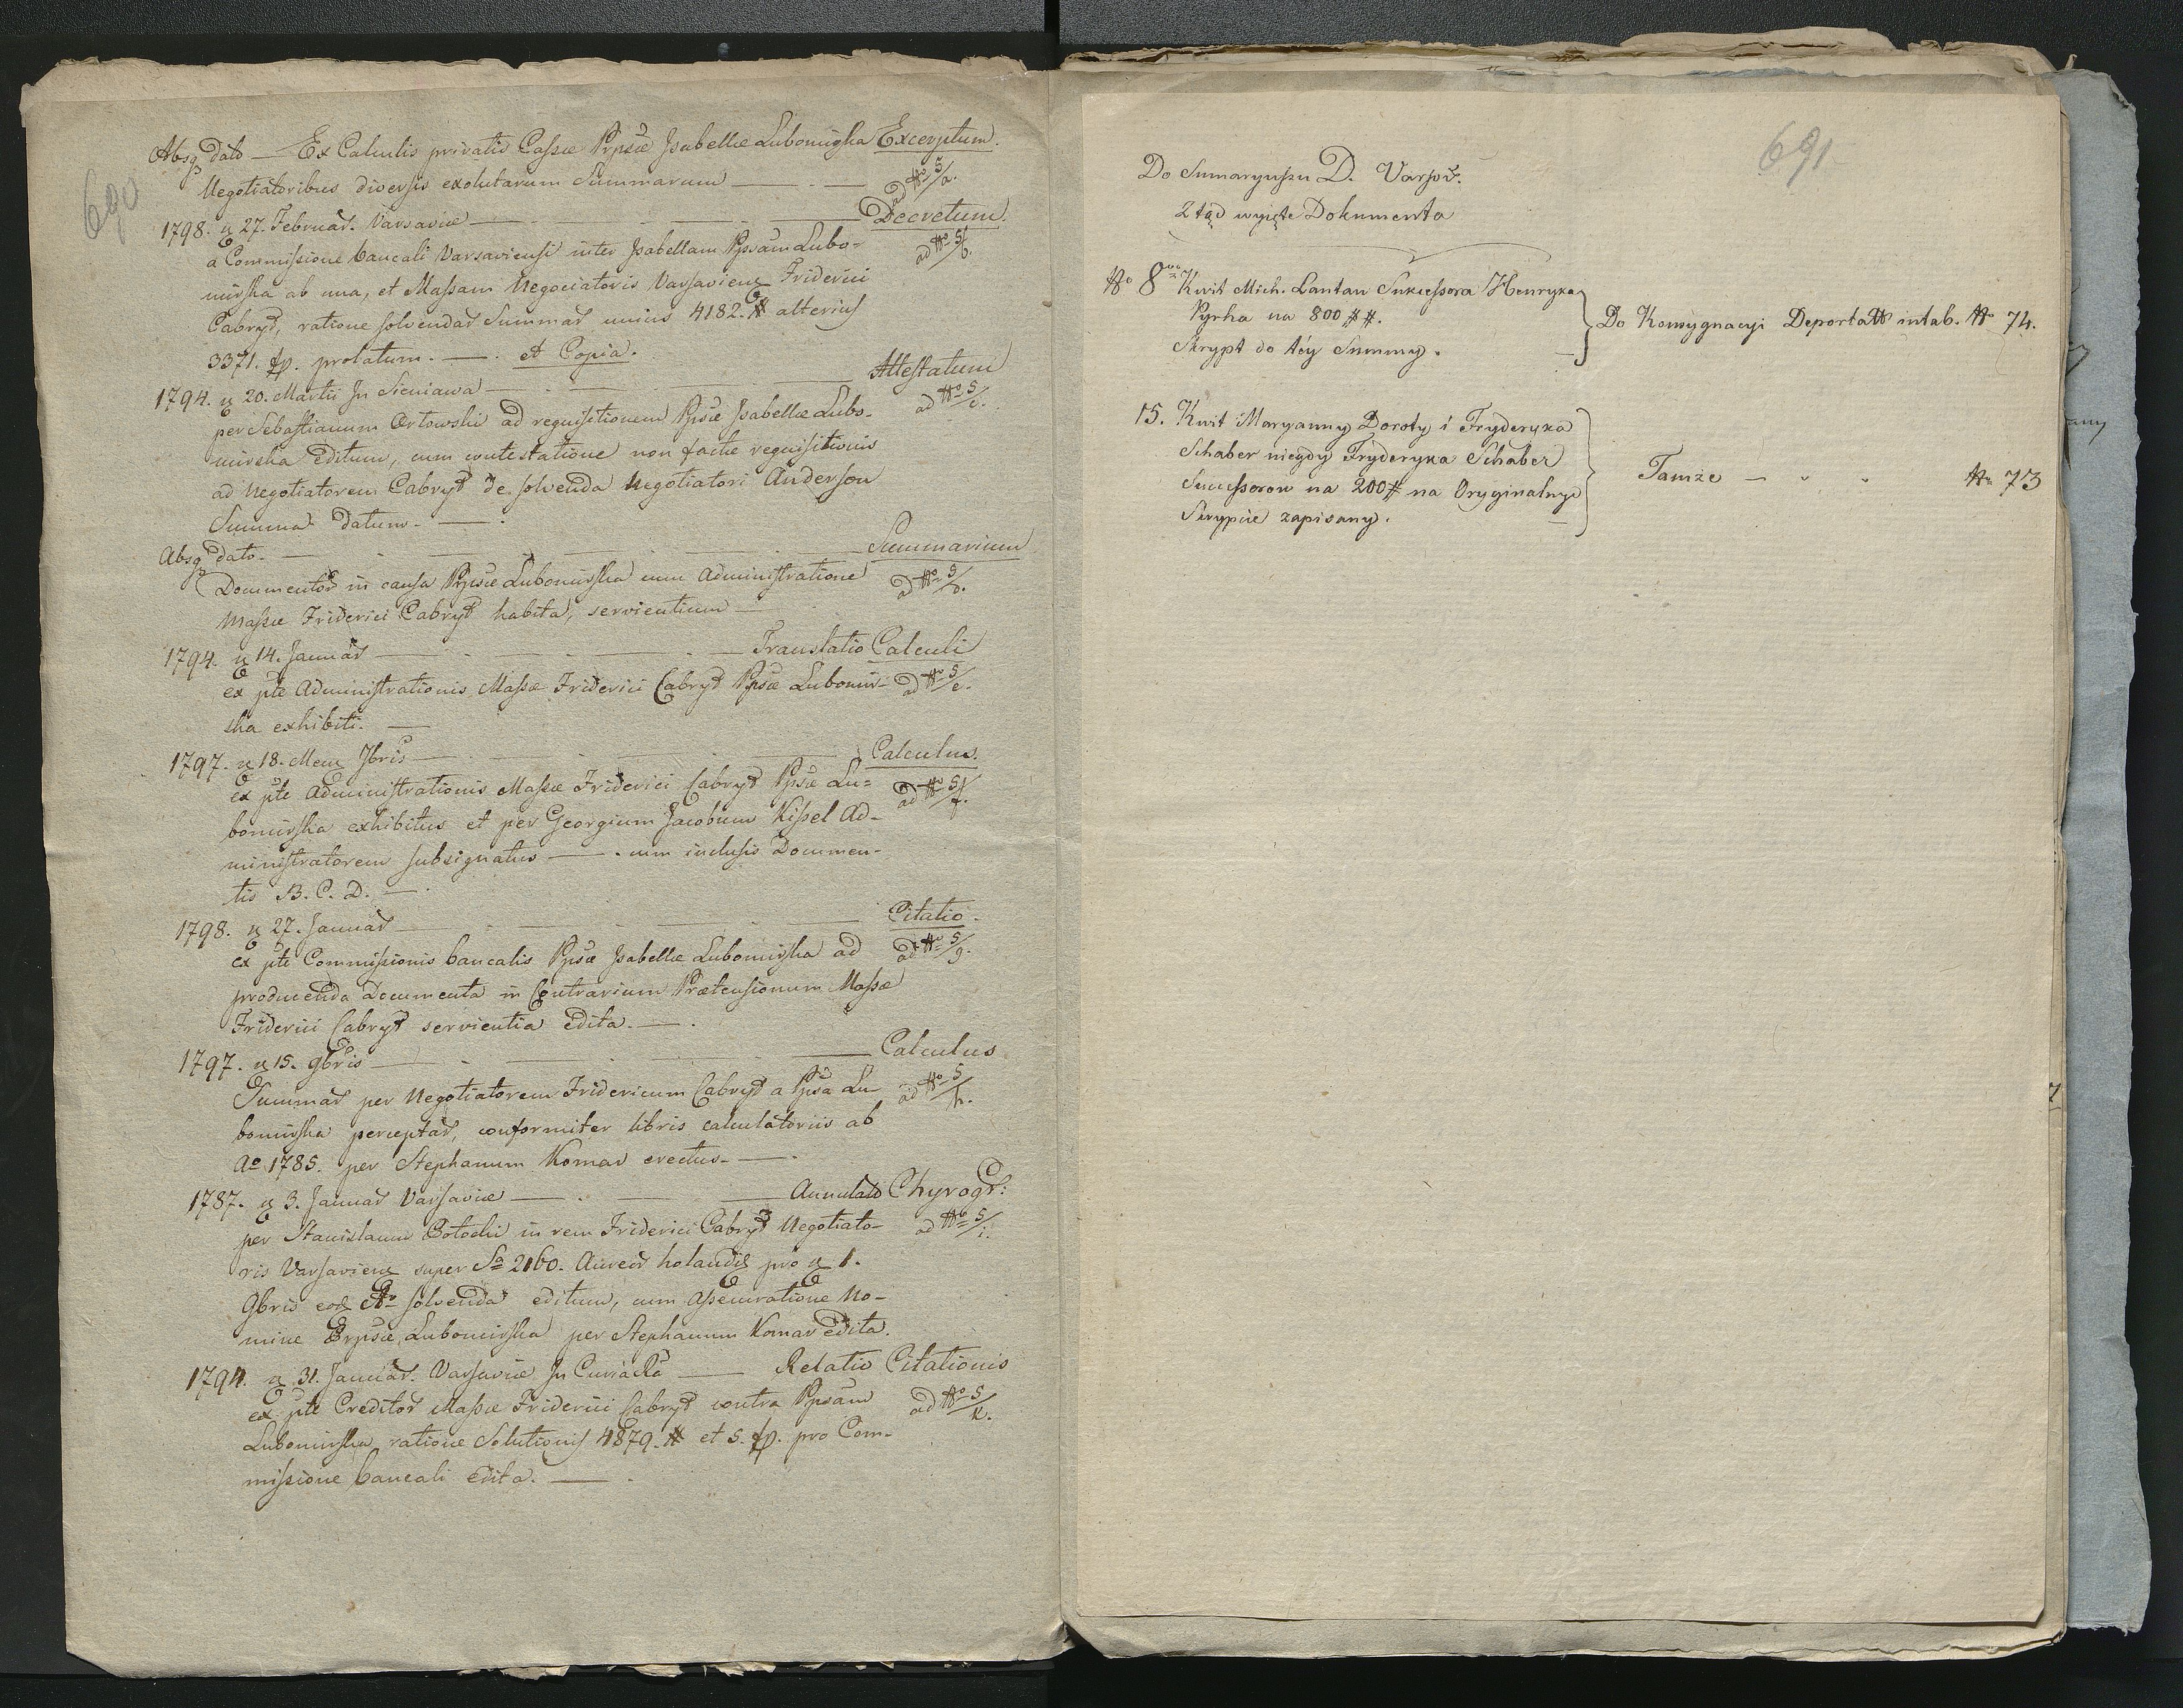 690
Absq dato — Ex Calculis privatis Cassæ Ppsæ Isabellæ Lubomirska Excerptum.
Negotiatoribus diversis exolutarum Summarum — . — ad No 5/a.
1798. 27. Februar. Varsaviæ — Decretum.
a Commissione bancali Varsaviensi inter Isabellam Ppsam Lubo- ad No 5/b.
mirska ab una, et Massam Negociatoris Varsaviens Friderici
Cabryt, ratione solvendar Summar unius 4182. # alterius
3371. fp. prolatum. — . et Copia.
1794. 20. Martii In Sieniawa — Attestatum
per Sebastianum Orlowski ad requisitionem Ppsæ Isabellæ Lubo- ad No 5/c.
mirska editum, cum contestatione non factæ requisitionis
ad Negotiatorem Cabryt de solvenda Negotiatori Anderson
Summa datum. — .
Absq dato. — Summarium
Documentor in causa Ppsæ Lubomirska cum Administratione ad No 5/d.
Massæ Friderici Cabryt habita, servientium —
1794. 14. Januar — Translatio Calculi
ex pte Administrationis Massæ Friderici Cabryt Ppsæ Lubomir- ad No 5/e.
ska exhibiti. —
1797. 18. Mens 7bris — Calculus.
ex pte Administrationis Massæ Friderici Cabryt Ppsæ Lu= ad No 5/f.
bomirska exhibitus et per Georgium Jacobum Kissel Ad-
ministratorem subsignatus — . cum inclusis Documen-
tis B. C. D. — .
1798. 27. Januar — Citatio.
ex pte Commissionis bancalis Ppsæ Isabellæ Lubomirska ad ad No 5/g.
producenda Documenta in Contrarium Prætensionum Massæ
Friderici Cabryt servientia edita. — .
1797. 15. 9bris — Calculus
Summar per Negotiatorem Fridericum Cabryt a Ppsa Lu- ad No 5/h.
bomirska perceptar, conformiter libris calculatoriis ab
Ao 1785. per Stephanum Komar erectus. — .
1787. 3. Januar Varsaviæ — . — Chyrogr:
per Stanislaum Potocki in rem Friderici Cabryt Negotiato- ad No 5/i.
ris Varsaviens super Sa 2160. Aureor holandic pro 1.
9bris eod Ao solvenda editum, cum Assecuratione No-
mine Ppsæ Lubomirska per Stephanum Komar edita.
1794. 31. Januar. Varsaviæ In Curia Ra — Relatio Citationis
ex pte Creditor Massæ Friderici Cabryt contra Ppsam ad No 5/k.
Lubomirska ratione Solutionis 4879. # et 5. fp. pro Com-
missione bancali edita. — .
691
Do Sumaryuszu D. Varsov.
Ztąd wyięte Dokumenta
No 8vo Kwit Mich. Lantau Sukcessora Henryka
Pyrha na 800 ##.
Skrypt do téy Summy.
Do Konsygnacyi Deportatt intab. No 74.
15. Kwit Maryanny Doroty i Fryderyka
Schaber niegdy Fryderyka Schaber
Sucessorow na 200 # na Oryginalnye
Skrypcie zapisany.
Tamże — " " No 73